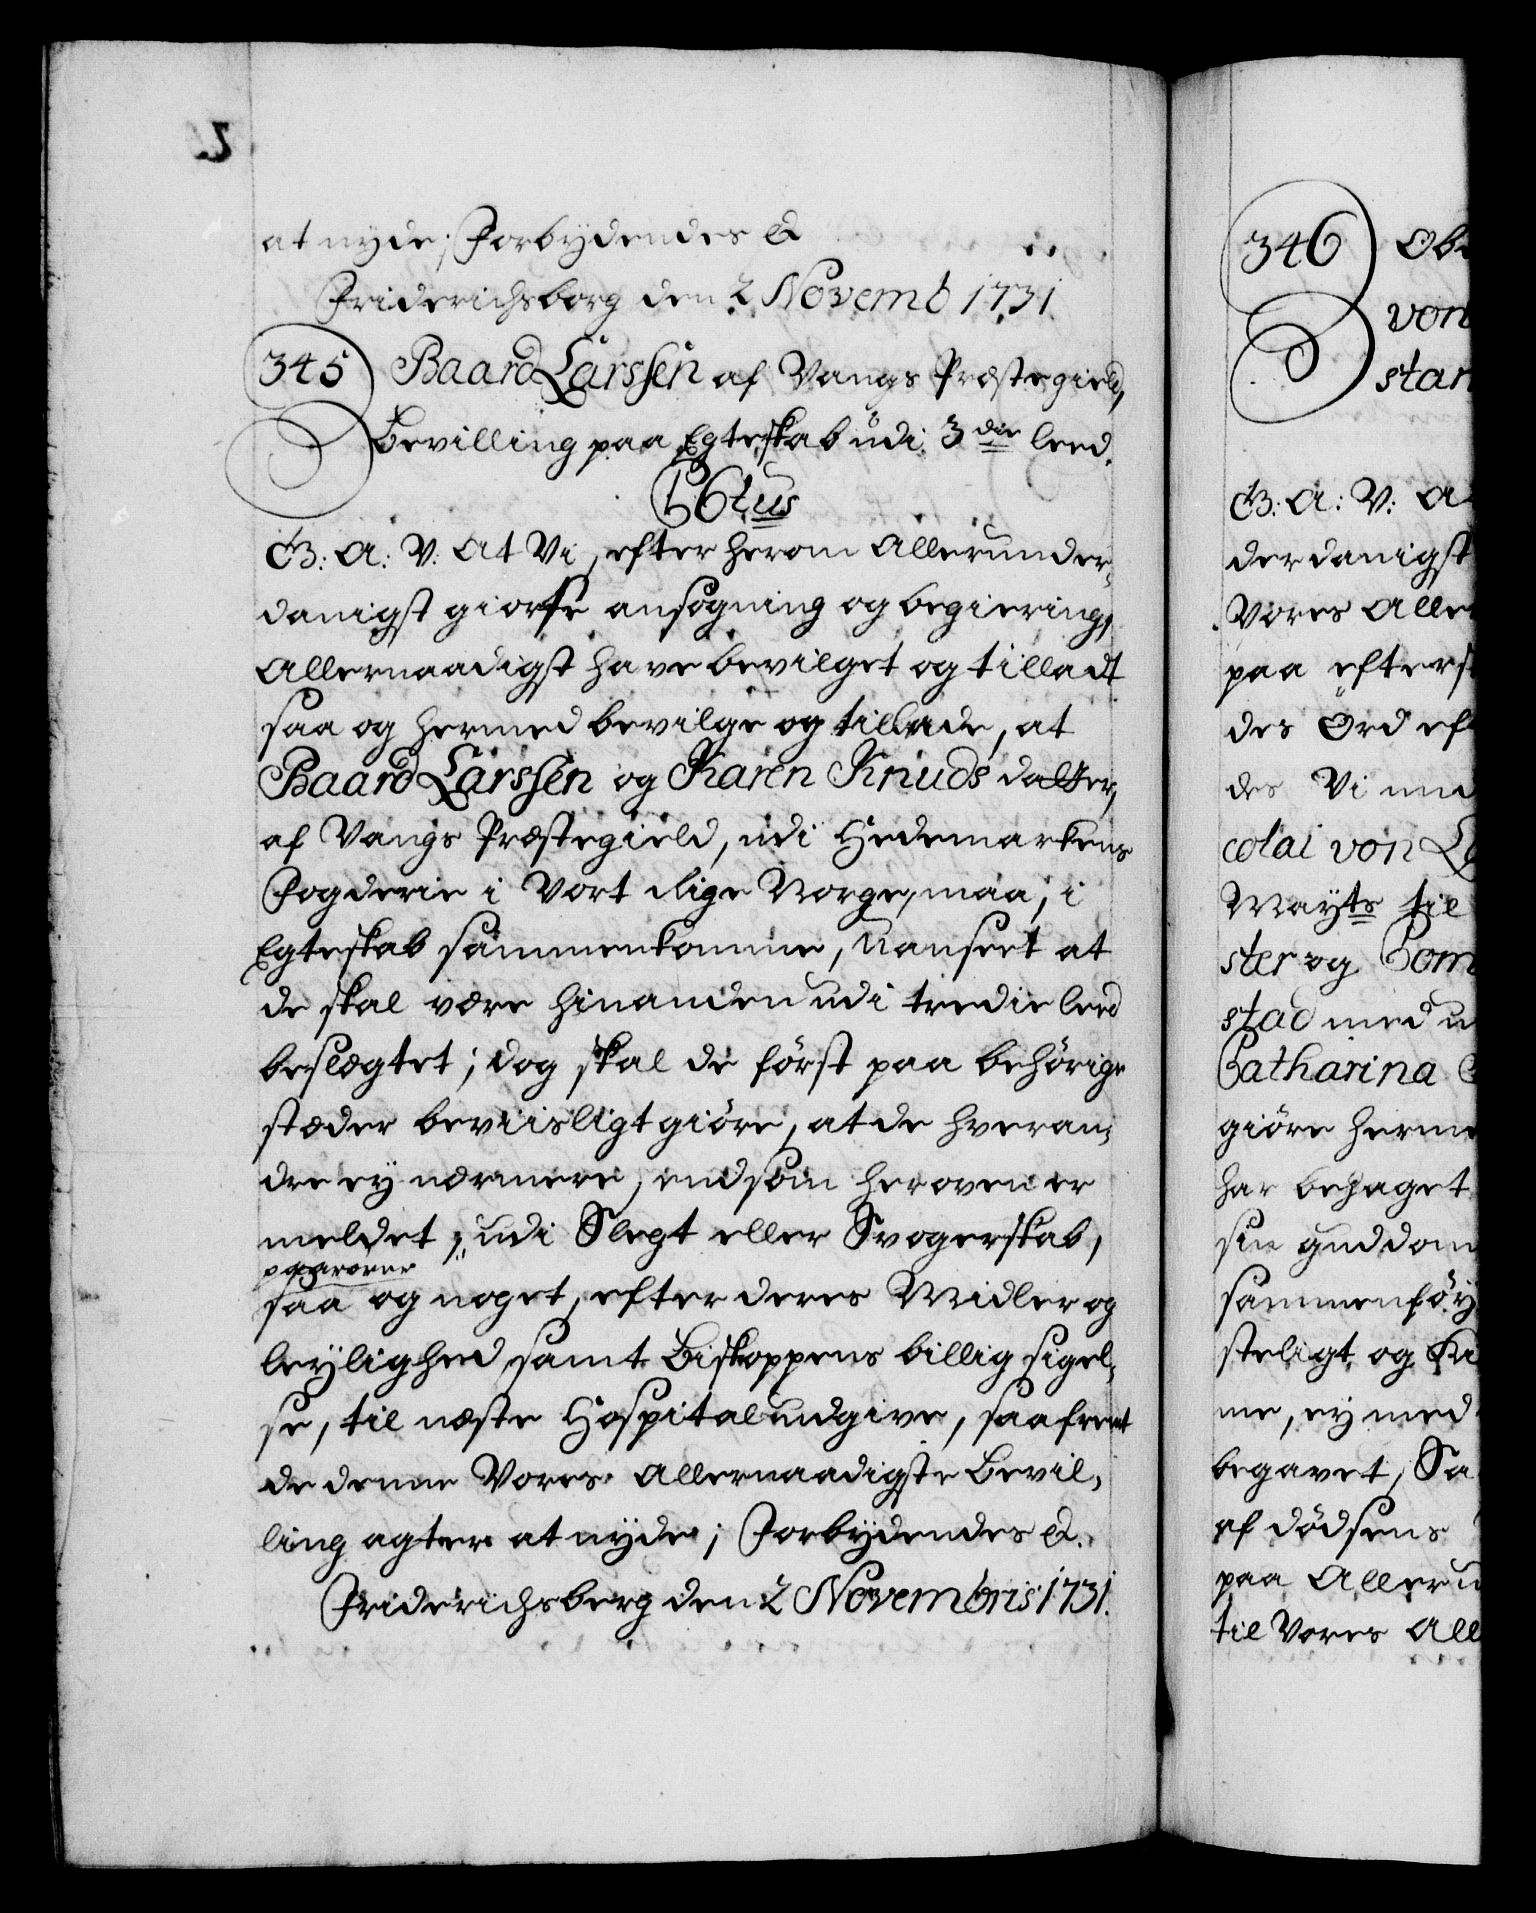 at nyde; Forbydendes &
Friderichsborg den 2 Novemb 1731
345 Baard Larssen af Vangs Præstegield,
Bevilling paa Egteskab udi 3die leed.
G: A: V: At Vi, efter herom Allerunder-
danigst giorte ansøgning og begiering,
Allernaadigst have bevilget og tilladt
saa og hermed bevilge og tillade, at
Baard Larssen og Karen Knuds datter,
af Vangs Præstegield, udi Hedemarkens
Fogderie i Vort Rige Norge, maa, i
Egteskab sammenkomme, Uanseet at
de skal være hinanden udi tredie leed
beslægtet; dog skal de först paa behörige
stæder beviisligt giöre, at de hveran-
dre ey nærmere, end som heroven er
meldet, udi Slegt eller Svogerskab,
paarörer
saa og noget, efter deres Midler og
leylighed, samt Biskoppens billig sigel-
se, til næste Hospital udgive, saafremt
de denne Vores Allernaadigste Bevil-
ling agter at nyde; Forbydendes &.
Friderichsberg den 2 Novembris 1731.
346 Ob
von
stan
G: A: V: A
derdanigst
Vores Aller
paa efters
des Ord ef
des Vi und
colai von L
Mayts til
ster og Com
stad med u
Catharina
giöre herme
har behaget
sin guddom
sammenföy
steligt og Ki
me, ey med
begavet, Sa
af dödsens
paa Alleru
til Vores All